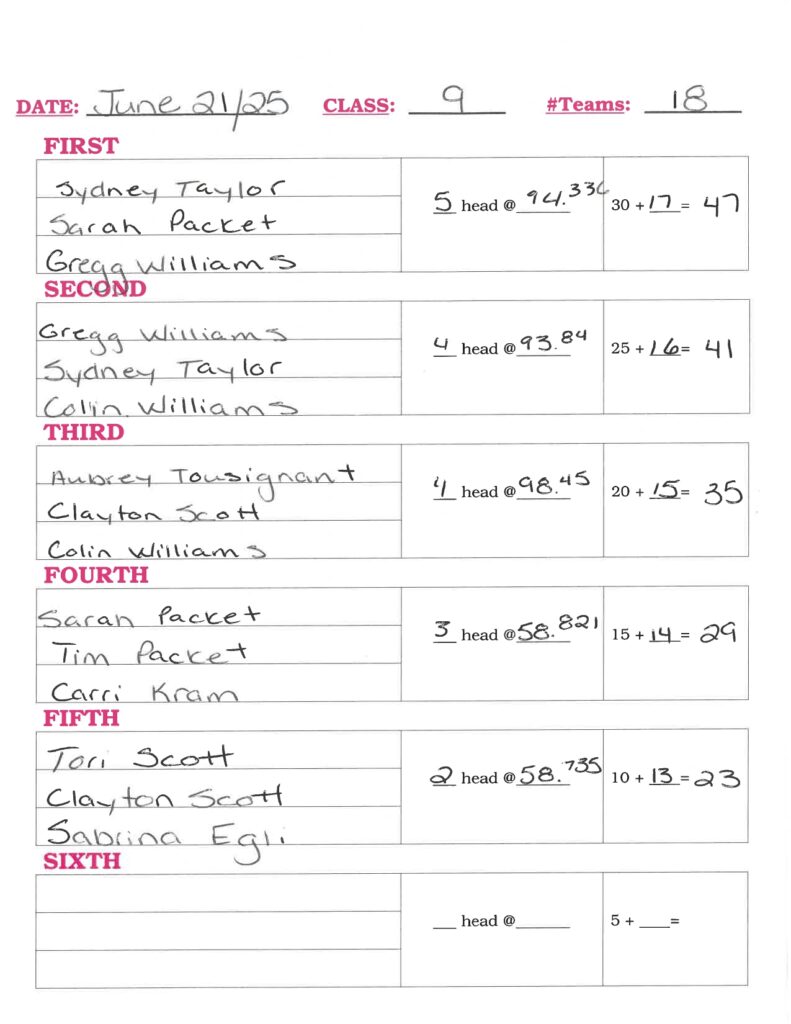 DATE: June 21/25 CLASS: 9 #Teams: 18
FIRST
Sydney Taylor
5 head @ 94.336 30 + 17 = 47
Sarah Packet
Gregg Williams
SECOND
Gregg Williams
4 head @ 93.84 25 + 16 = 41
Sydney Taylor
Colin Williams
THIRD
Aubrey Tousignant
4 head @ 98.45 20 + 15 = 35
Clayton Scott
Colin Williams
FOURTH
Sarah Packet
3 head @ 58.821 15 + 14 = 29
Tim Packet
Carri Kram
FIFTH
Tori Scott
2 head @ 58.735 10 + 13 = 23
Clayton Scott
Sabrina Egli
SIXTH
__ head @ ______ 5 + ___=